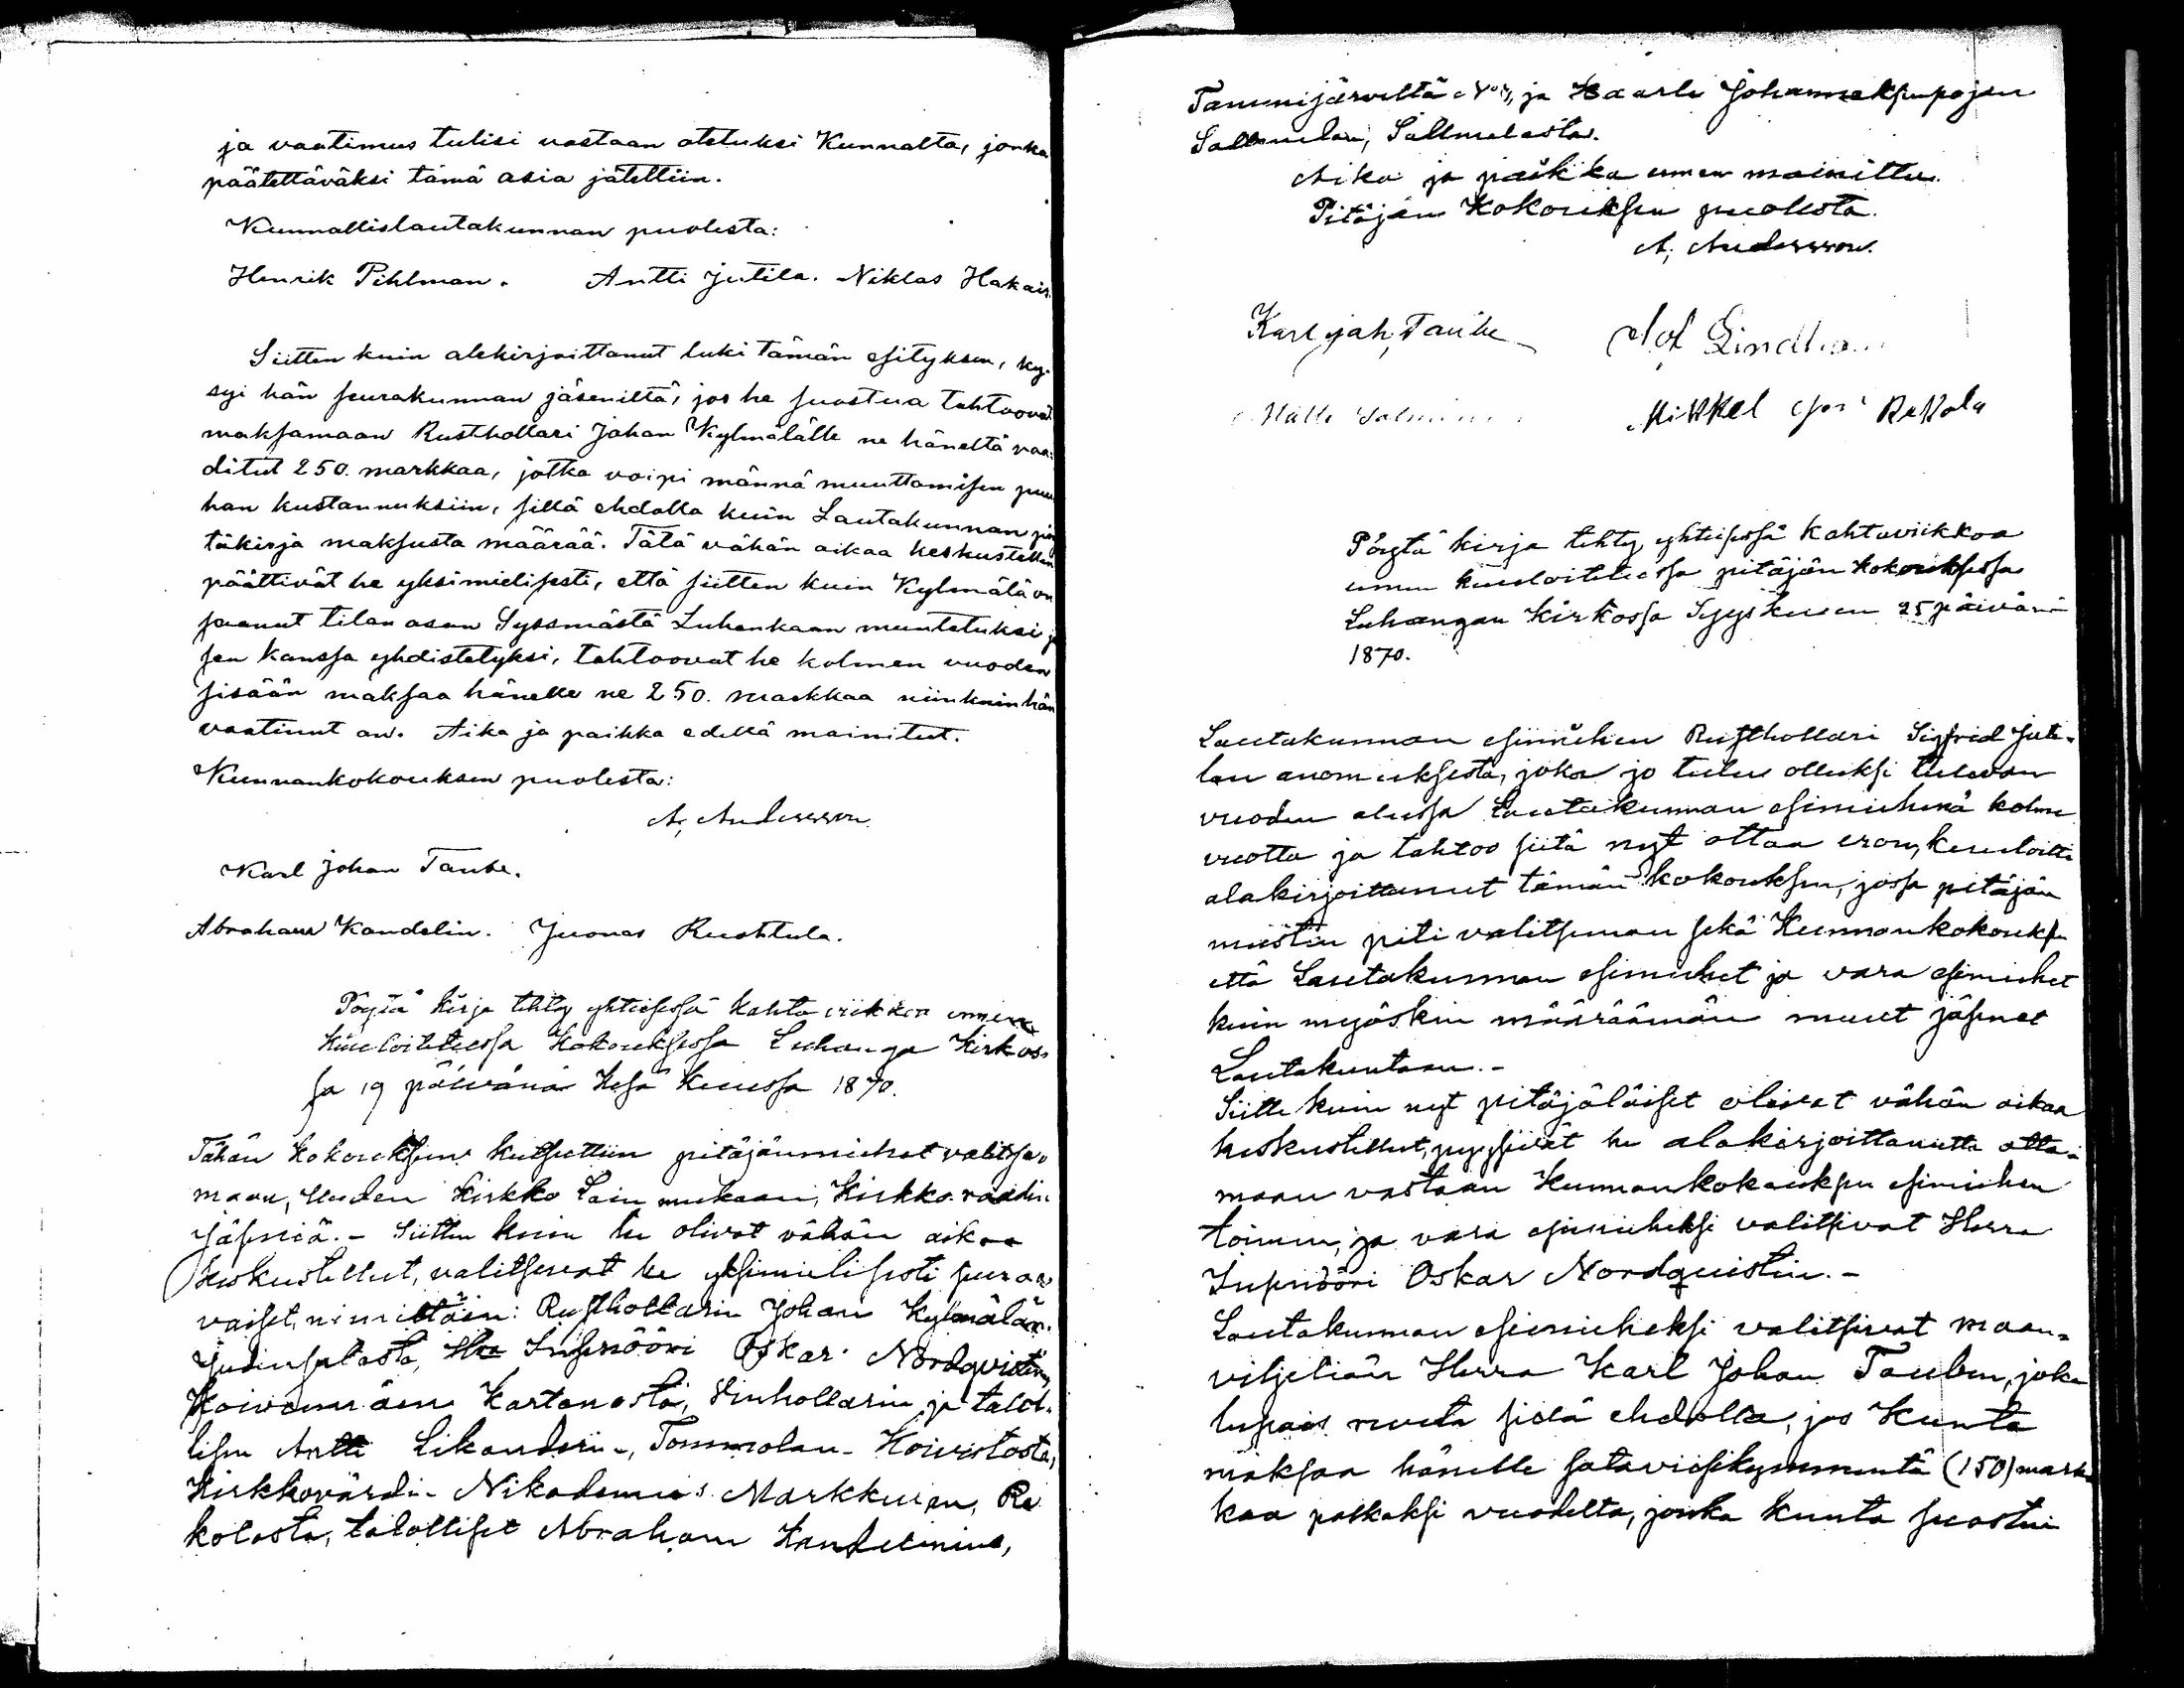 ja vaatimus tulisi vastaan otetuksi Kunnalta, jonka
päätettäväksi tämä asia jätettiin.
Kunnallislautakunnan puolesta:
Henrik Pihlman. Antti Jutila. Niklas Hakais
Siitten kuin alekirjoittanut luki tämän esityksen, ky-
syi hän seurakunnan jäseniltä, jos he suostua tahtoovat
maksamaan Rusthollari Johan Kylmälälle ne häneltä vaa-
ditut 250. markkaa, jotka voipi männä muuttamisen puu
han kustannuksiin, sillä ehdolla kuin Lautakunnan pöy
täkirja maksusta määrää. Tätä vähän aikaa keskustellen
päättivät he yksimielisesti, että siitten kuin Kylmälä on
saanut tilan osan Syssmästä Luhankaan muutetuksi ja
sen kanssa yhdistetyksi, tahtoovat he kolmen vuoden
sisään maksaa hänelle ne 250. markkaa niinkuin hän
vaatinut on. Aika ja paikka edellä mainitut.
Kunnankokouksen puolesta:
A, Andersson
Karl Johan Taube.
Abraham Kandelin. Juonas Ruohtula.
Pöytä kirja tehty yhteisessä kahta viikkoa ennen
kuuloitetussa Kokouksessa Luhanga Kirkos-
sa 19 päivänä Kesä Kuussa 1870.
Tähän Kokouksen kutsuttiin pitäjänmiehet valitse-
maan, Uuden Kirkko Lain mukaan, Kirkko raadin
Jäseniä. - Siitten kuin he olivat vähän aikaa
keskustellut, valitsevat he yksimielisesti seuraa
vaiset, nimittäin: Rusthollarin Johan Kylmälän
Judinsalosta, Insinööri Oskar Nordqvistin,
Koivumäen Kartanosta, ja talol-
lisen Antti Likanderin, Tommolan Koivistosta,
Kirkkovärdi- Nikodemus Markkusen, Re
kolasta, talolliset Abraham Kandelinin,
Tammijärveltä ja Kaarle Johanneksenpojan
Salmelan, Salmelasta.
Aika ja paikka ennen mainittu.
Pitäjän Kokouksen puolesta.
A, Andersson.
Karl Joh, Taube
Mikkel Rekola
Pöytä kirja tehty yhteisessä kahtaviikkoa
ennen kuuloitetussa pitäjän kokouksessa
Luhangan Kirkossa Syyskuun 25 päivänä
1870.
Lautakunnan esimiehen Rusthollari Sigfrid Juti-
lan anomuksesta, joka jo tulee olleeksi tulevan
vuoden alussa Lautakunnan esimiehenä kolme
vuotta ja tahtoo siitä nyt ottaa eron, kuuloitti
alakirjoittanut tämän kokouksen, jossa pitäjän
miestin piti valitseman sekä Kunnankokouksen
että Lautakunnan esimiehet ja vara esimiehet
kuin myöskin määräämän muut jäsenet
Lautakuntaan.-
Siitte kuin nyt pitäjäläiset olivat vähän aikaa
keskustellut, pyysivät he alakirjoittanutta otta-
maan vastaan Kunnankokouksen esimiehen
toimen, ja vara esimieheksi valitsivat Herra
Insinööri Oskar Nordquistin.-
Lautakunnan esimieheksi valitsivat maan-
viljeliän Herra Karl Johan Tauben, joka
lupais ruveta sillä ehdolla, jos Kunta
maksaa hänelle sataviisikymmentä (150) mark
kaa palkaksi vuodelta, jonka Kunta suostui